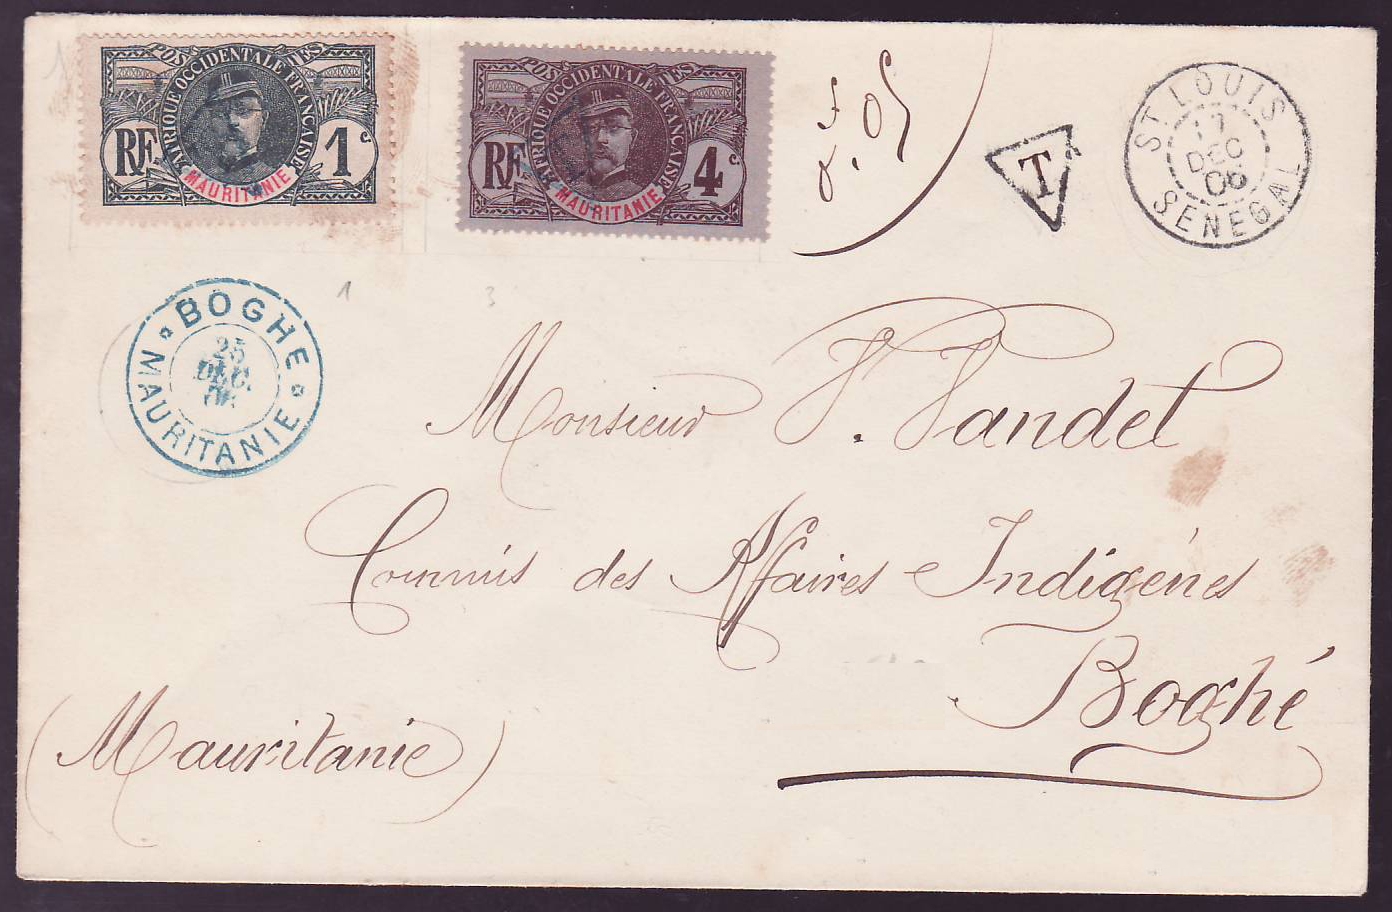 1
POSTES
AFRIQUE OCCIDENTALE FRANÇAISE
RF
1c
MAURITANIE
POSTES
AFRIQUE OCCIDENTALE FRANÇAISE
RF
4c
MAURITANIE
T
ST LOUIS
17
DEC
06
SENEGAL
BOGHE
25
DEC.
MAURITANIE
1
3
Monsieur V. Vandet
Commis des Affaires Indigènes
Boghé
(Mauritanie)